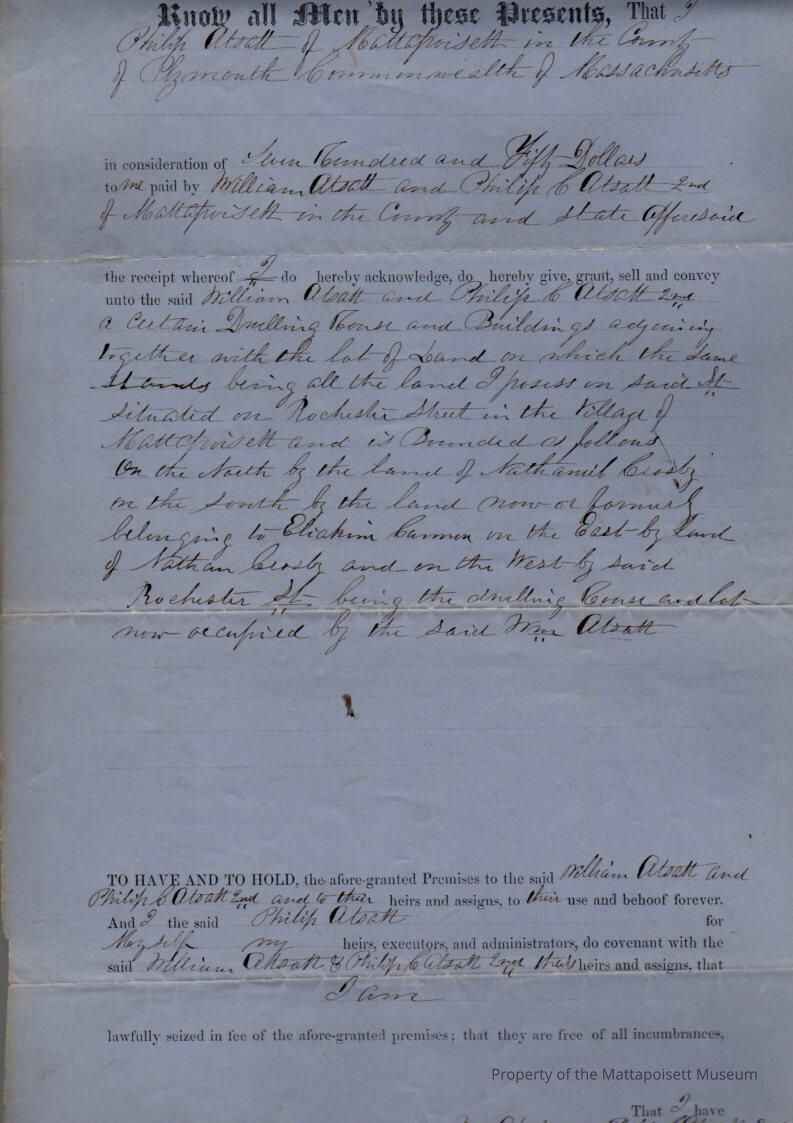 Know all Men by these Presents, That I
Philip Atsatt of Mattapoisett in the County
of Plymouth Commonwealth of Massachusetts
in consideration of Seven Hundred and Fifty Dollars
to me paid by William Atsatt and Philip C Atsatt 2nd
of Mattapoisett in the County and state afforesaid
the receipt whereof I do hereby acknowledge, do hereby give, grant, sell and convey
unto the said William Atsatt and Philip C Atsatt 2nd
a certain Dwelling House and Buildings adjoining
together with the lot of Land on which the same
stands being all the land I posess on said St
situated on Rochester Street in the Village of
Mattapoisett and is Bounded as follows
On the North by the land of Nathaniel Crosby
on the South by the land now or formerly
belonging to Eliakim Cannon on the East by land
of Nathan Crosby and on the West by said
Rochester St being the dwelling House and lot
now occupied by the said Wm Atsatt
TO HAVE AND TO HOLD, the afore-granted Premises to the said William Atsatt and
Philip C Atsatt 2nd and to their heirs and assigns, to their use and behoof forever.
And I the said Philip Atsatt for
Myself my heirs, executors, and administrators, do covenant with the
said William Atsatt & Philip C Atsatt 2nd their heirs and assigns, that
I am
lawfully seized in fee of the afore-granted premises; that they are free of all incumbrances,
Property of the Mattapoisett Museum
That I have